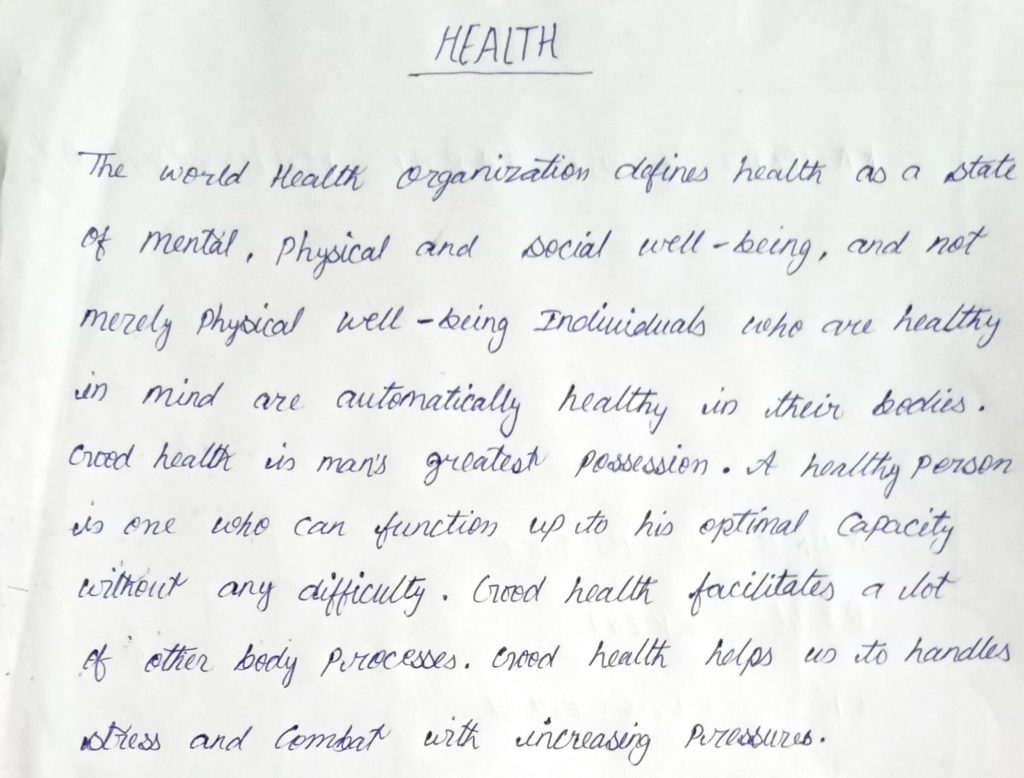 HEALTH
The world Health Organization defines health as a state
of mental, Physical and social well-being, and not
merely Physical well-being Individuals who are healthy
in mind are automatically healthy in their bodies.
Good health is man's greatest possession. A healthy Person
is one who can function up to his optimal Capacity
without any difficulty. Good health facilitates a lot
of other body Processes. Good health helps us to handles
stress and Combat with increasing Pressures.